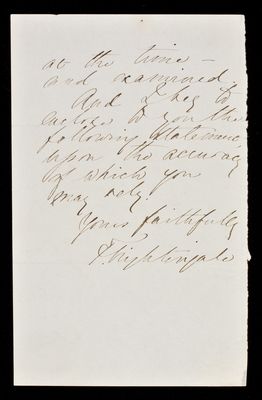 at the time –
and examined.
And I beg to
enclose to you the
following statement
upon the accuracy
of which you
may rely.
Yours faithfully
F. Nightingale